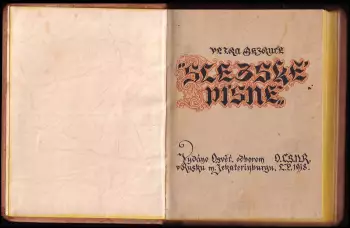 PETRA BEZRUČE
SLEZSKÉ
PÍSNĚ.
Vydáno Osvět. odborem O.Č.S.N.R.
v Rusku m. Jekaterinburgu, L.P. 1918.